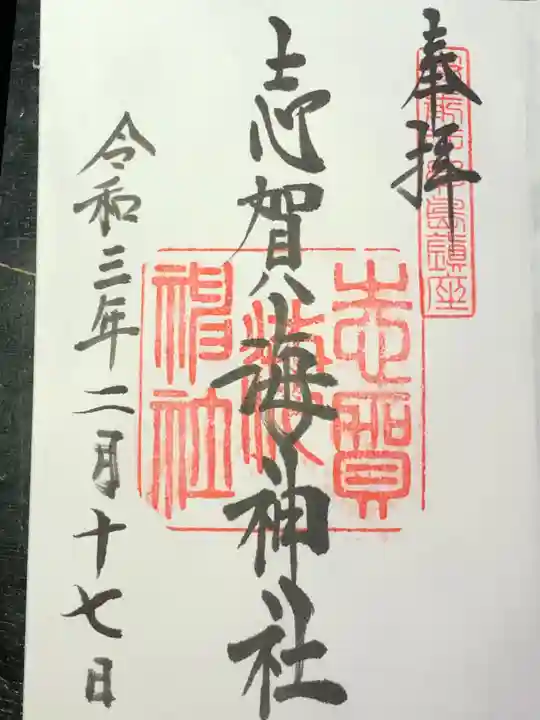 奉拝
志賀海神社
志賀海神社
令和三年二月十七日